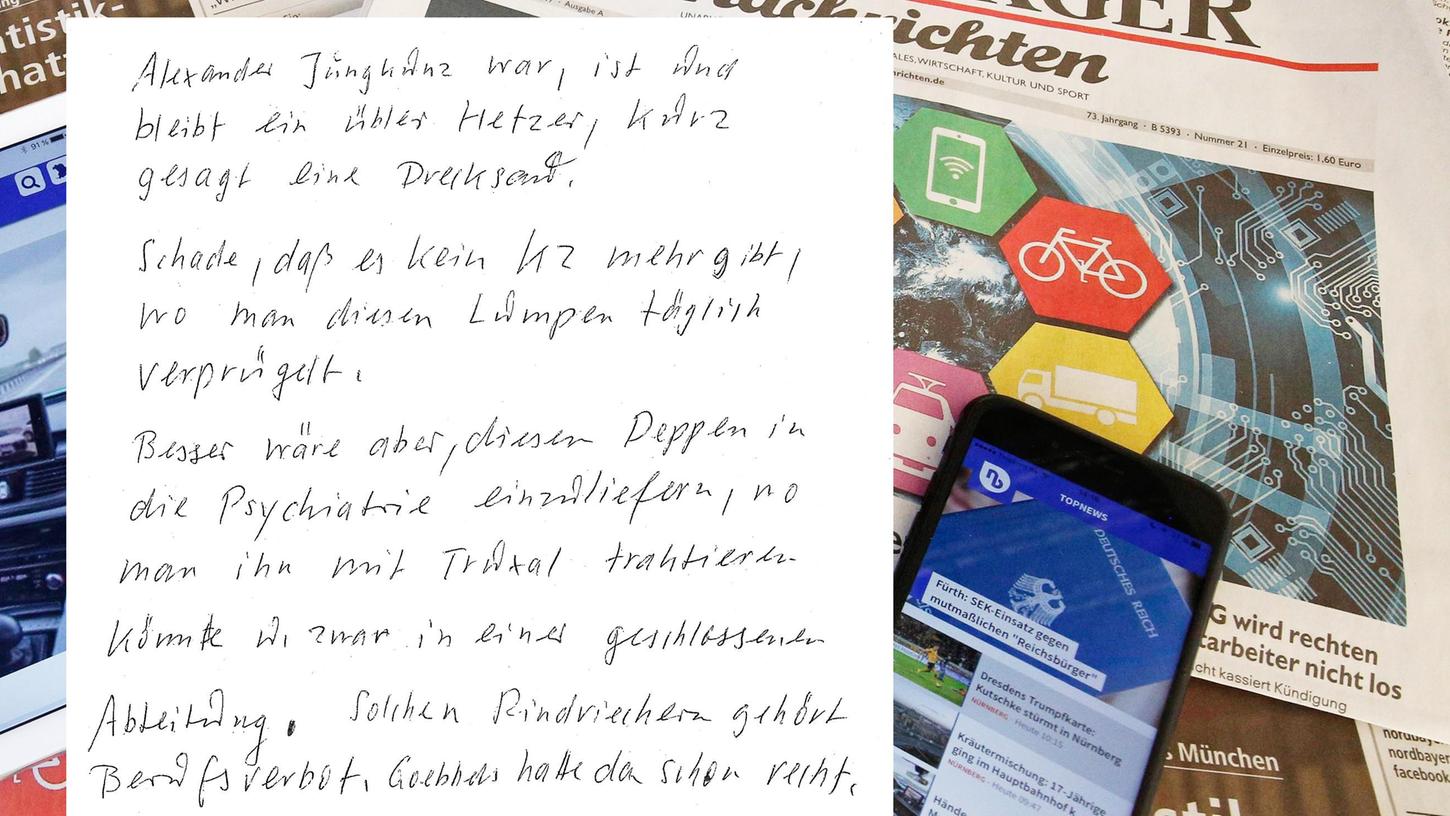 Alexander Jungkunz war, ist und
bleibt ein übler Hetzer, kurz
gesagt eine Drecksau.
Schade, daß es kein KZ mehr gibt,
wo man diesen Lumpen täglich
verprügelt.
Besser wäre aber, diesen Deppen in
die Psychiatrie einzuliefern, wo
man ihn mit Truxal traktieren
könnte u. zwar in einer geschlossenen
Abteilung. Solchen Rindviechern gehört
Berufsverbot. Goebbels hatte da schon recht.
atistik-
hat
91%
Ausgabe A
GER
Nachrichten
ALES, WIRTSCHAFT, KULTUR UND SPORT
hrichten.de
73. Jahrgang · B 5393 · Nummer 21 · Einzelpreis: 1,60 Euro
G wird rechten
tarbeiter nicht los
cht kassiert Kündigung
TOPNEWS
DEUTSCHES REICH
Fürth: SEK-Einsatz gegen
mutmaßlichen "Reichsbürger"
Dresdens Trumpfkarte:
Kutschke stürmt in Nürnberg
NÜRNBERG - Heute 10:15
Kräutermischung: 17-Jährige
ging im Hauptbahnhof k
NÜRNBERG - Heute 09:47
Hände
s München
nordbay
nordbayer
facebook